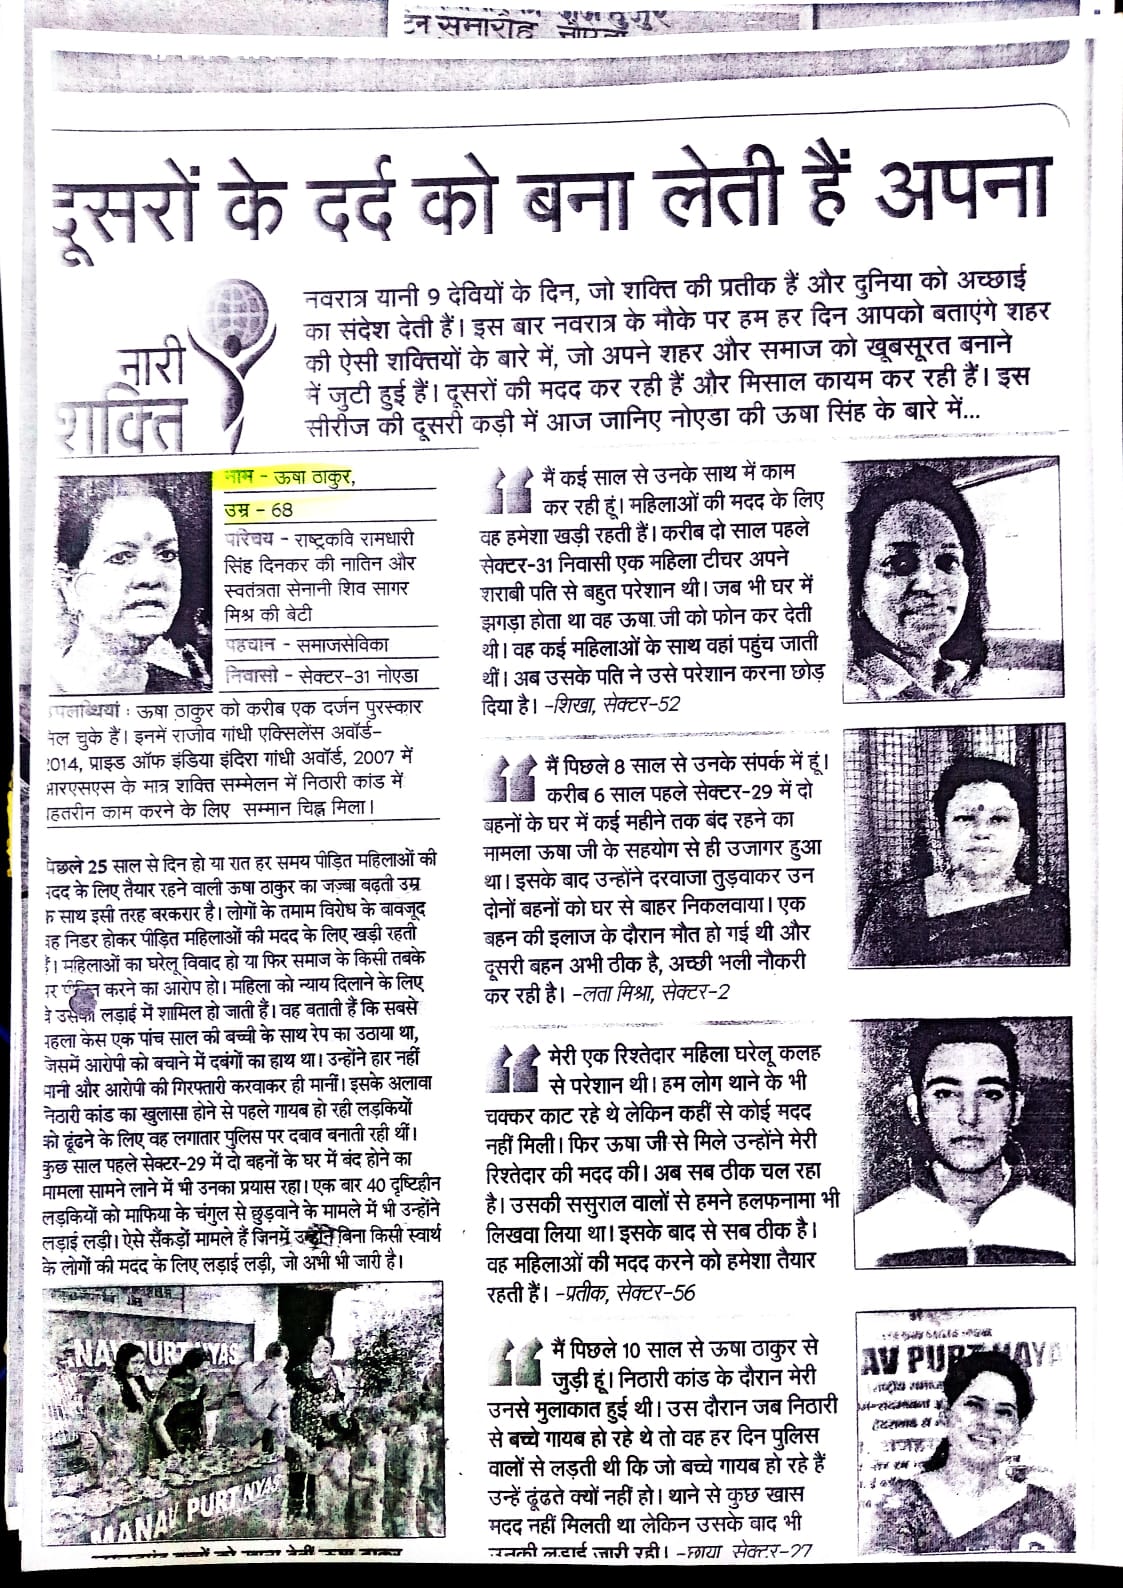 टन समारोह
दूसरों के दर्द को बना लेती हैं अपना
नारी
शक्ति
नवरात्र यानी 9 देवियों के दिन, जो शक्ति की प्रतीक हैं और दुनिया को अच्छाई
का संदेश देती हैं। इस बार नवरात्र के मौके पर हम हर दिन आपको बताएंगे शहर
की ऐसी शक्तियों के बारे में, जो अपने शहर और समाज को खूबसूरत बनाने
में जुटी हुई हैं। दूसरों की मदद कर रही हैं और मिसाल कायम कर रही हैं। इस
सीरीज की दूसरी कड़ी में आज जानिए नोएडा की ऊषा सिंह के बारे में...
नाम - ऊषा ठाकुर,
उम्र - 68
परिचय - राष्ट्रकवि रामधारी
सिंह दिनकर की नातिन और
स्वतंत्रता सेनानी शिव सागर
मिश्र की बेटी
पहचान - समाजसेविका
निवासी - सेक्टर-31 नोएडा
उपलब्धियां : ऊषा ठाकुर को करीब एक दर्जन पुरस्कार
मिल चुके हैं। इनमें राजीव गांधी एक्सिलेंस अवॉर्ड-
2014, प्राइड ऑफ इंडिया इंदिरा गांधी अवॉर्ड, 2007 में
आरएसएस के मात्र शक्ति सम्मेलन में निठारी कांड में
बेहतरीन काम करने के लिए सम्मान चिह्न मिला।
पिछले 25 साल से दिन हो या रात हर समय पीड़ित महिलाओं की
मदद के लिए तैयार रहने वाली ऊषा ठाकुर का जज़्बा बढ़ती उम्र
के साथ इसी तरह बरकरार है। लोगों के तमाम विरोध के बावजूद
वह निडर होकर पीड़ित महिलाओं की मदद के लिए खड़ी रहती
हैं। महिलाओं का घरेलू विवाद हो या फिर समाज के किसी तबके
पर करने का आरोप हो। महिला को न्याय दिलाने के लिए
वे उसकी लड़ाई में शामिल हो जाती हैं। वह बताती हैं कि सबसे
पहला केस एक पांच साल की बच्ची के साथ रेप का उठाया था,
जिसमें आरोपी को बचाने में दबंगों का हाथ था। उन्होंने हार नहीं
मानी और आरोपी की गिरफ्तारी करवाकर ही मानीं। इसके अलावा
निठारी कांड का खुलासा होने से पहले गायब हो रही लड़कियों
को ढूंढने के लिए वह लगातार पुलिस पर दबाव बनाती रही थीं।
कुछ साल पहले सेक्टर-29 में दो बहनों के घर में बंद होने का
मामला सामने लाने में भी उनका प्रयास रहा। एक बार 40 दृष्टिहीन
लड़कियों को माफिया के चंगुल से छुड़वाने के मामले में भी उन्होंने
लड़ाई लड़ी। ऐसे सैंकड़ों मामले हैं जिनमें उन्होंने बिना किसी स्वार्थ
के लोगों की मदद के लिए लड़ाई लड़ी, जो अभी भी जारी है।
NAV PURT NYAS
MANAV PURT NYAS
को खाना देतीं ऊषा ठाकुर
मैं कई साल से उनके साथ में काम
कर रही हूं। महिलाओं की मदद के लिए
वह हमेशा खड़ी रहती हैं। करीब दो साल पहले
सेक्टर-31 निवासी एक महिला टीचर अपने
शराबी पति से बहुत परेशान थी। जब भी घर में
झगड़ा होता था वह ऊषा जी को फोन कर देती
थी। वह कई महिलाओं के साथ वहां पहुंच जाती
थीं। अब उसके पति ने उसे परेशान करना छोड़
दिया है। -शिखा, सेक्टर-52
मैं पिछले 8 साल से उनके संपर्क में हूं।
करीब 6 साल पहले सेक्टर-29 में दो
बहनों के घर में कई महीने तक बंद रहने का
मामला ऊषा जी के सहयोग से ही उजागर हुआ
था। इसके बाद उन्होंने दरवाजा तुड़वाकर उन
दोनों बहनों को घर से बाहर निकलवाया। एक
बहन की इलाज के दौरान मौत हो गई थी और
दूसरी बहन अभी ठीक है, अच्छी भली नौकरी
कर रही है। -लता मिश्रा, सेक्टर-2
मेरी एक रिश्तेदार महिला घरेलू कलह
से परेशान थी। हम लोग थाने के भी
चक्कर काट रहे थे लेकिन कहीं से कोई मदद
नहीं मिली। फिर ऊषा जी से मिले उन्होंने मेरी
रिश्तेदार की मदद की। अब सब ठीक चल रहा
है। उसकी ससुराल वालों से हमने हलफनामा भी
लिखवा लिया था। इसके बाद से सब ठीक है।
वह महिलाओं की मदद करने को हमेशा तैयार
रहती हैं। -प्रतीक, सेक्टर-56
मैं पिछले 10 साल से ऊषा ठाकुर से
जुड़ी हूं। निठारी कांड के दौरान मेरी
उनसे मुलाकात हुई थी। उस दौरान जब निठारी
से बच्चे गायब हो रहे थे तो वह हर दिन पुलिस
वालों से लड़ती थी कि जो बच्चे गायब हो रहे हैं
उन्हें ढूंढते क्यों नहीं हो। थाने से कुछ खास
मदद नहीं मिलती था लेकिन उसके बाद भी
उनकी लड़ाई जारी रही। -छाया, सेक्टर-27
AV PURT NYA